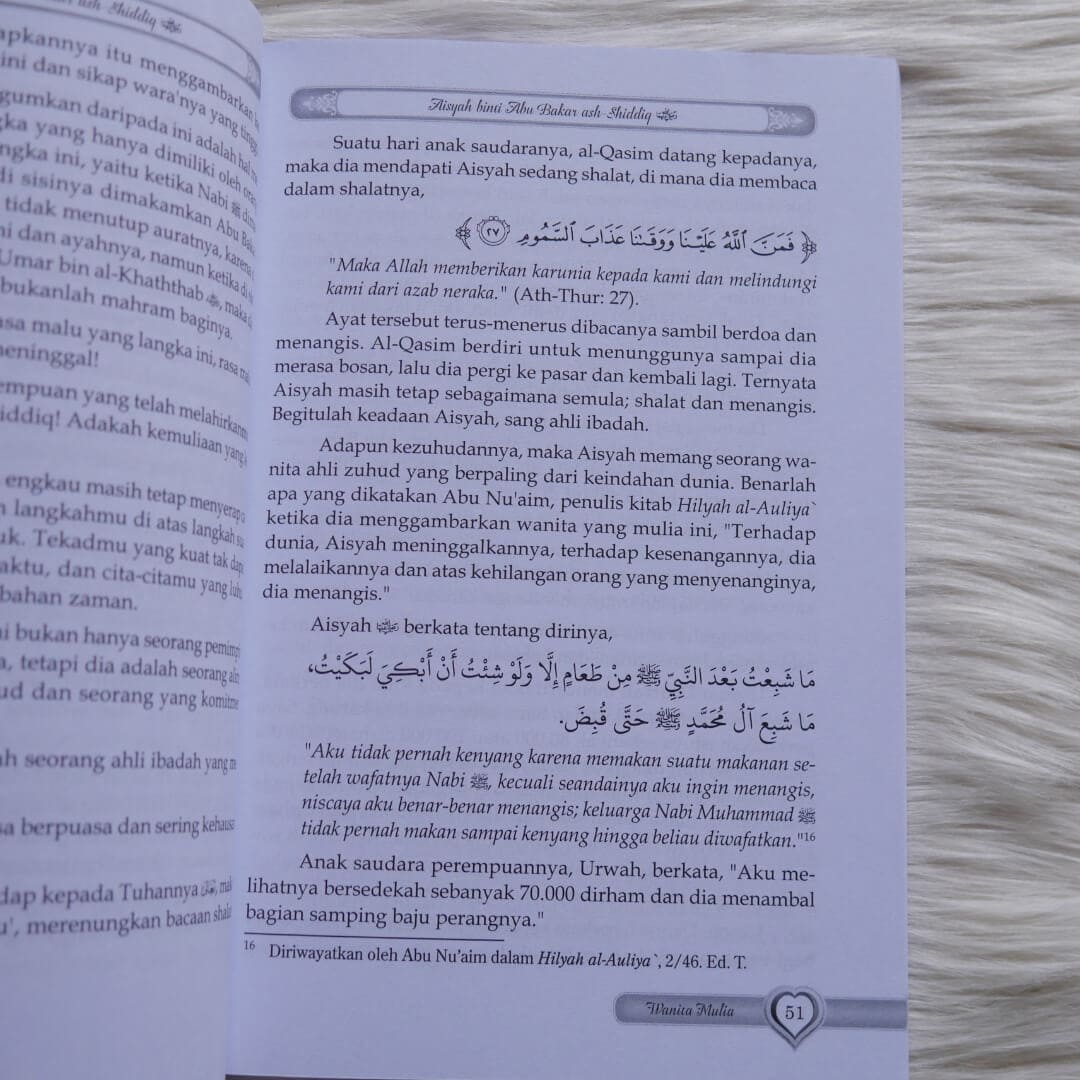 ash-Shiddiq
apkannya itu menggambarkan
ini dan sikap wara'nya yang
gumkan daripada ini adalah hal
gka yang hanya dimiliki oleh
ngka ini, yaitu ketika Nabi ﷺ
di sisinya dimakamkan Abu
tidak menutup auratnya, karena
ni dan ayahnya, namun ketika di
Umar bin al-Khaththab
bukanlah mahram baginya.
asa malu yang langka ini, rasa
meninggal!
empuan yang telah melahirkan
iddiq! Adakah kemuliaan yang
engkau masih tetap menyerap
n langkahmu di atas langkah
uk. Tekadmu yang kuat tak
aktu, dan cita-citamu yang
bahan zaman.
ni bukan hanya seorang
a, tetapi dia adalah seorang
ud dan seorang yang
ah seorang ahli ibadah yang
sa berpuasa dan sering
dap kepada Tuhannya
u', merenungkan bacaan
Aisyah binti Abu Bakar ash-Shiddiq
Suatu hari anak saudaranya, al-Qasim datang kepadanya,
maka dia mendapati Aisyah sedang shalat, di mana dia membaca
dalam shalatnya,
﴿ فَمَنَّ ٱللَّهُ عَلَيْنَا وَوَقَىٰنَا عَذَابَ ٱلسَّمُومِ ٢٧ ﴾
"Maka Allah memberikan karunia kepada kami dan melindungi
kami dari azab neraka." (Ath-Thur: 27).
Ayat tersebut terus-menerus dibacanya sambil berdoa dan
menangis. Al-Qasim berdiri untuk menunggunya sampai dia
merasa bosan, lalu dia pergi ke pasar dan kembali lagi. Ternyata
Aisyah masih tetap sebagaimana semula; shalat dan menangis.
Begitulah keadaan Aisyah, sang ahli ibadah.
Adapun kezuhudannya, maka Aisyah memang seorang wa-
nita ahli zuhud yang berpaling dari keindahan dunia. Benarlah
apa yang dikatakan Abu Nu'aim, penulis kitab Hilyah al-Auliya`
ketika dia menggambarkan wanita yang mulia ini, "Terhadap
dunia, Aisyah meninggalkannya, terhadap kesenangannya, dia
melalaikannya dan atas kehilangan orang yang menyenanginya,
dia menangis."
Aisyah berkata tentang dirinya,
مَا شَبِعْتُ بَعْدَ النَّبِيِّ ﷺ مِنْ طَعَامٍ إِلَّا وَلَوْ شِئْتُ أَنْ أَبْكِيَ لَبَكَيْتُ،
مَا شَبِعَ آلُ مُحَمَّدٍ ﷺ حَتَّى قُبِضَ.
"Aku tidak pernah kenyang karena memakan suatu makanan se-
telah wafatnya Nabi ﷺ, kecuali seandainya aku ingin menangis,
niscaya aku benar-benar menangis; keluarga Nabi Muhammad ﷺ
tidak pernah makan sampai kenyang hingga beliau diwafatkan."16
Anak saudara perempuannya, Urwah, berkata, "Aku me-
lihatnya bersedekah sebanyak 70.000 dirham dan dia menambal
bagian samping baju perangnya."
16 Diriwayatkan oleh Abu Nu'aim dalam Hilyah al-Auliya`, 2/46. Ed. T.
Wanita Mulia 51